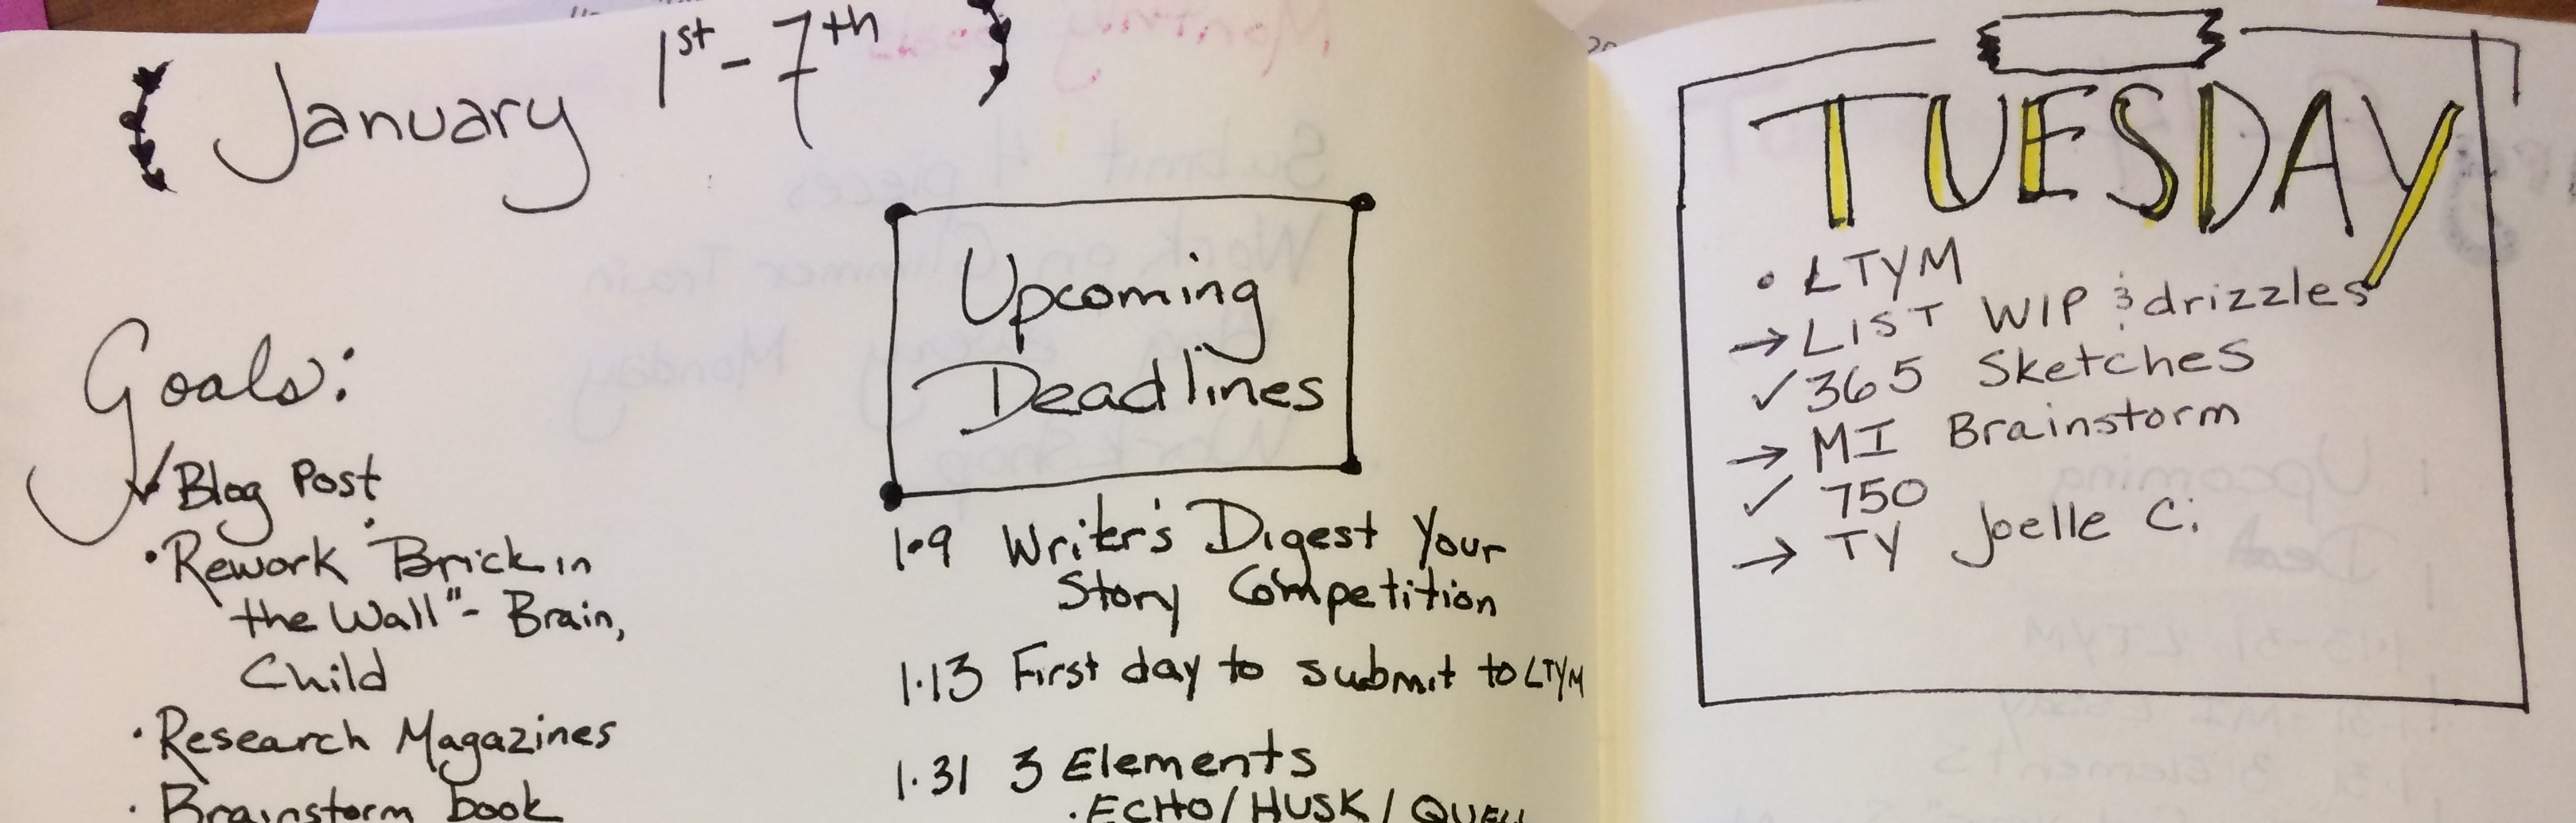 January 1st - 7th
Goals:
Blog Post
Rework "Brick in
the Wall" - Brain,
Child
Research Magazines
Brainstorm book
Upcoming
Deadlines
1.9 Writer's Digest Your
Story Competition
1.13 First day to submit to LTYM
1.31 3 Elements
ECHO / HUSK / QUELL
TUESDAY
LTYM
→ LIST WIP & drizzles
✓ 365 Sketches
→ MI Brainstorm
✓ 750
→ TY Joelle C.